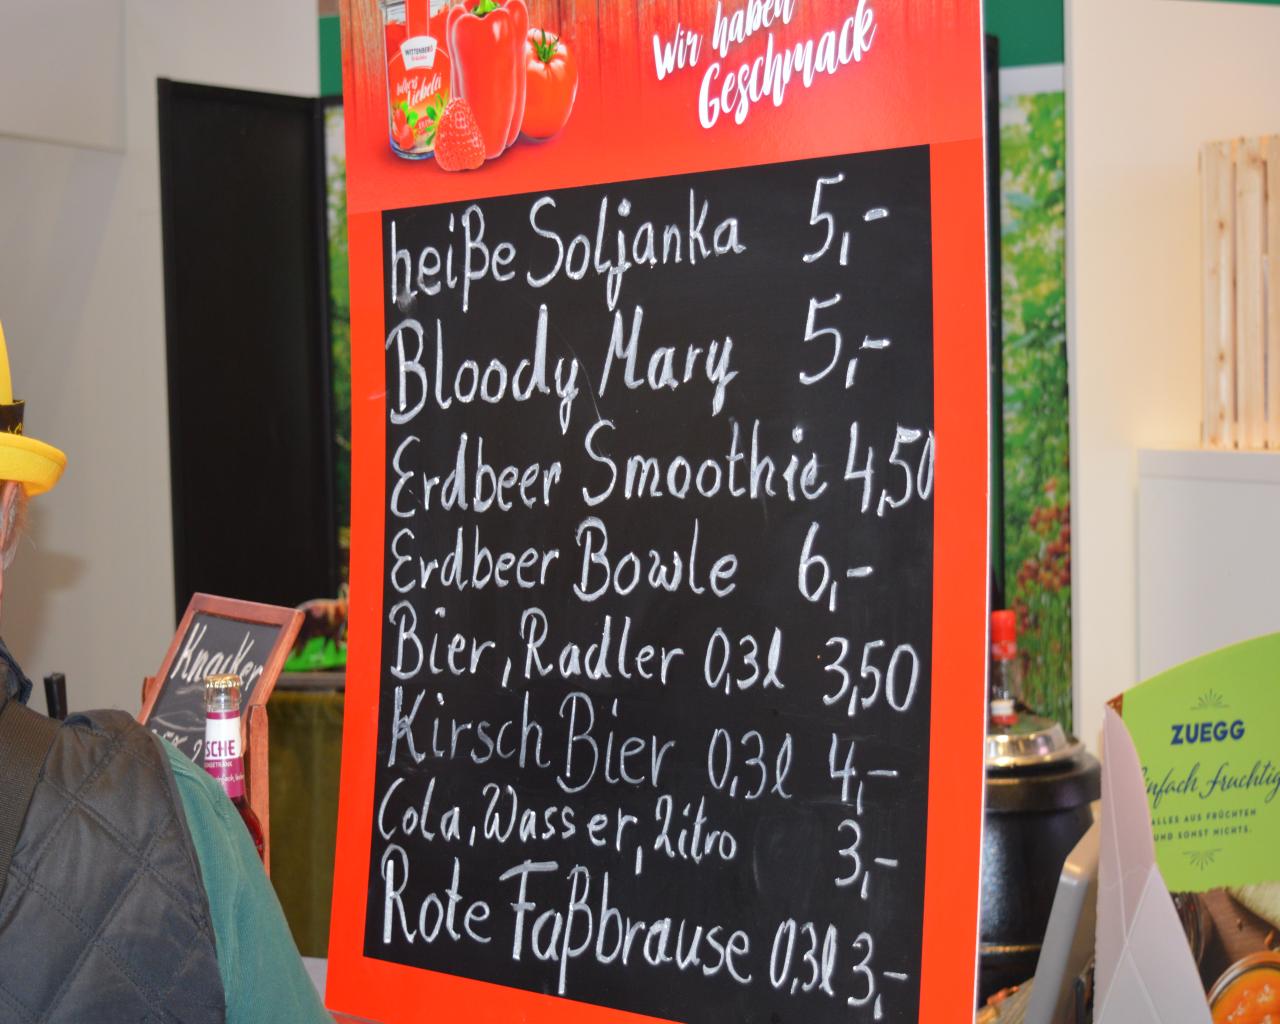 Wir haben
Geschmack
WITTENBERG
heiße Soljanka 5,-
Bloody Mary 5,-
Erdbeer Smoothie 4,50
Erdbeer Bowle 6,-
Bier, Radler 0,3l 3,50
Kirsch Bier 0,3l 4,-
Cola, Wasser, Zitro 3,-
Rote Faßbrause 0,3l 3,-
Knacker
SCHE
ZUEGG
infach fruchtig
ALLES AUS FRÜCHTEN
UND SONST NICHTS.